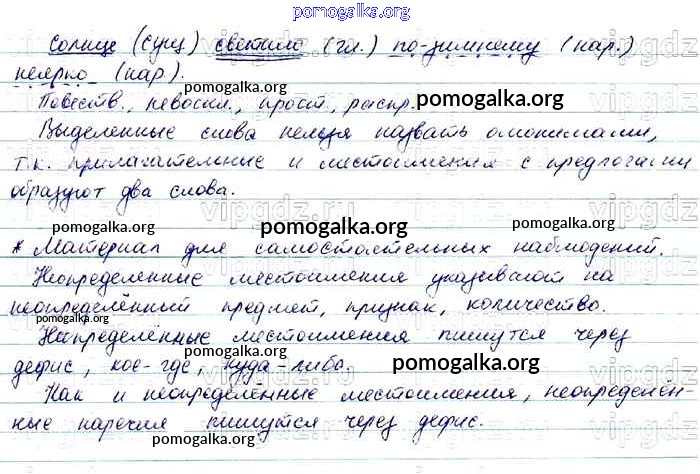 pomogalka.org
Солнце (сущ) светило (гл.) по-зимнему (нар.)
неярко (нар.). pomogalka.org
Повеств., невоскл., прост., распр. pomogalka.org
Выделенные слова нельзя назвать омонимами,
т.к. прилагательные и местоимения с предлогами
образуют два слова.
pomogalka.org pomogalka.org pomogalka.org
* Материал для самостоятельных наблюдений.
Неопределенные местоимения указывают на
неопределённый предмет, признак, количество.
pomogalka.org
Неопределённые местоимения пишутся через
дефис, кое-где, куда-либо. pomogalka.org
Как и неопределённые местоимения, неопределён-
ные наречия пишутся через дефис.
pomogalka.org pomogalka.org